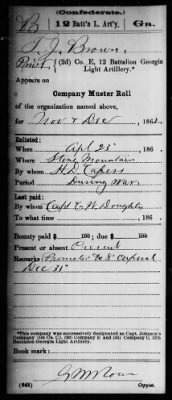 (Confederate.)
B 12 Batt'n L. Art'y, Ga.
T. J. Brown
Privt, (2d) Co. E, 12 Battalion Georgia
Light Artillery.*
Appears on
Company Muster Roll
of the organization named above,
for Nov & Dec, 1862.
Enlisted:
When Apl 25, 186 .
Where Stone Mountain
By whom H. D. Capers
Period During War
Last paid:
By whom Capt C. W. Doughty
To what time , 186 .
Bounty paid $ 100; due $ 100
Present or absent Present
Remarks: Promoted to 3d Corporal
Dec 31st
*This company was successively designated as Capt. Johnson's
Company (2d) Co. E and (2d) Company C, 12th
Battalion Georgia Light Artillery.
Book mark:
(642)
G M Rowe
Copyist.